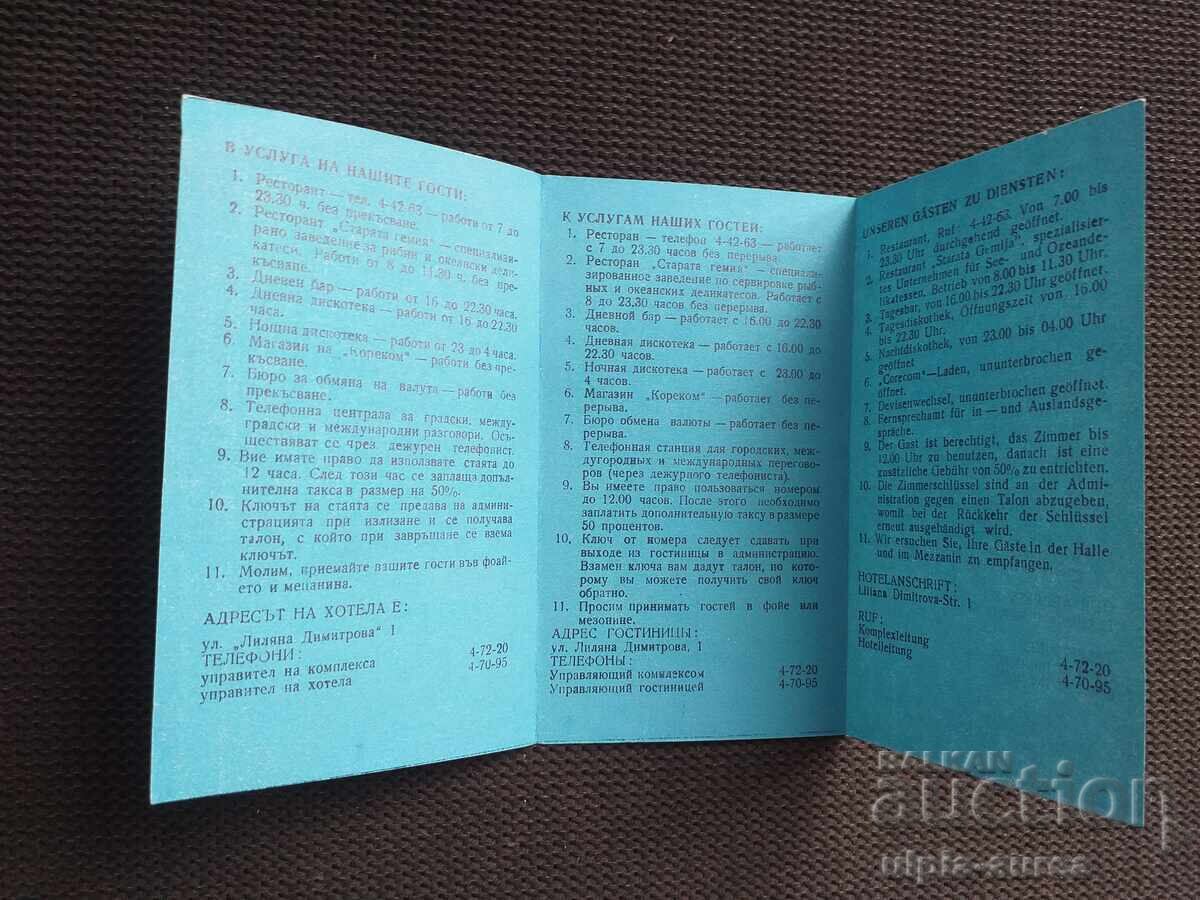 В УСЛУГА НА НАШИТЕ ГОСТИ:
1. Ресторант — тел. 4-42-63 — работи от 7 до
23.30 ч. без прекъсване.
2. Ресторант „Старата гемия" — специализи-
рано заведение за рибни и океански дели-
катеси. Работи от 8 до 11.30 ч. без пре-
късване.
3. Дневен бар — работи от 16 до 22.30 часа.
4. Дневна дискотека — работи от 16 до 22.30
часа.
5. Нощна дискотека — работи от 23 до 4 часа.
6. Магазин на „Кореком" — работи без пре-
късване.
7. Бюро за обмяна на валута — работи без
прекъсване.
8. Телефонна централа за градски, между-
градски и международни разговори. Осъ-
ществяват се чрез дежурен телефонист.
9. Вие имате право да използвате стаята до
12 часа. След този час се заплаща допъл-
нителна такса в размер на 50%.
10. Ключът на стаята се предава на админи-
страцията при излизане и се получава
талон, с който при завръщане се взема
ключът.
11. Молим, приемайте вашите гости във фоай-
ето и мецанина.
АДРЕСЪТ НА ХОТЕЛА Е:
ул. „Лиляна Димитрова" 1
ТЕЛЕФОНИ:
управител на комплекса 4-72-20
управител на хотела 4-70-95
К УСЛУГАМ НАШИХ ГОСТЕЙ:
1. Ресторан — телефон 4-42-63 — работает
с 7 до 23.30 часов без перерыва.
2. Ресторан „Старата гемия" — специали-
зированное заведение по сервировке рыб-
ных и океанских деликатесов. Работает с
8 до 23.30 часов без перерыва.
3. Дневной бар — работает с 16.00 до 22.30
часов.
4. Дневная дискотека — работает с 16.00 до
22.30 часов.
5. Ночная дискотека — работает с 23.00 до
4 часов.
6. Магазин „Кореком" — работает без пе-
рерыва.
7. Бюро обмена валюты — работает без пе-
рерыва.
8. Телефонная станция для городских, меж-
дугородных и международных перегово-
ров (через дежурного телефониста).
9. Вы имеете право пользоваться номером
до 12.00 часов. После этого необходимо
заплатить дополнительную таксу в размере
50 процентов.
10. Ключ от номера следует сдавать при
выходе из гостиницы в администрацию.
Взамен ключа вам дадут талон, по кото-
рому вы можете получить свой ключ
обратно.
11. Просим принимать гостей в фойе или
мезонине.
АДРЕС ГОСТИНИЦЫ:
ул. Лиляна Димитрова, 1
ТЕЛЕФОНЫ:
Управляющий комплексом 4-72-20
Управляющий гостиницей 4-70-95
UNSEREN GÄSTEN ZU DIENSTEN:
1. Restaurant, Ruf: 4-42-63. Von 7.00 bis
23.30 Uhr durchgehend geöffnet.
2. Restaurant „Starata Gemija", spezialisier-
tes Unternehmen für See- und Ozeande-
likatessen. Betrieb von 8.00 bis 11.30 Uhr.
3. Tagesbar, von 16.00 bis 22.30 Uhr geöffnet.
4. Tagesdiskothek, Öffnungszeit von 16.00
bis 22.30 Uhr.
5. Nachtdiskothek, von 23.00 bis 04.00 Uhr
geöffnet
6. „Corecom"—Laden, ununterbrochen ge-
öffnet.
7. Devisenwechsel, ununterbrochen geöffnet.
8. Fernsprechamt für in — und Auslandsge-
spräche.
9. Der Gast ist berechtigt, das Zimmer bis
12.00 Uhr zu benutzen, danach ist eine
zusätzliche Gebühr von 50% zu entrichten.
10. Die Zimmerschlüssel sind an der Admi-
nistration gegen einen Talon abzugeben,
womit bei der Rückkehr der Schlüssel
erneut ausgehändigt wird.
11. Wir ersuchen Sie, Ihre Gäste in der Halle
und im Mezzanin zu empfangen,
HOTELANSCHRIFT:
Liliana Dimitrova-Str. 1
RUF:
Komplexleitung 4-72-20
Hotelleitung 4-70-95
BALKAN
auction
ulpia-aurea